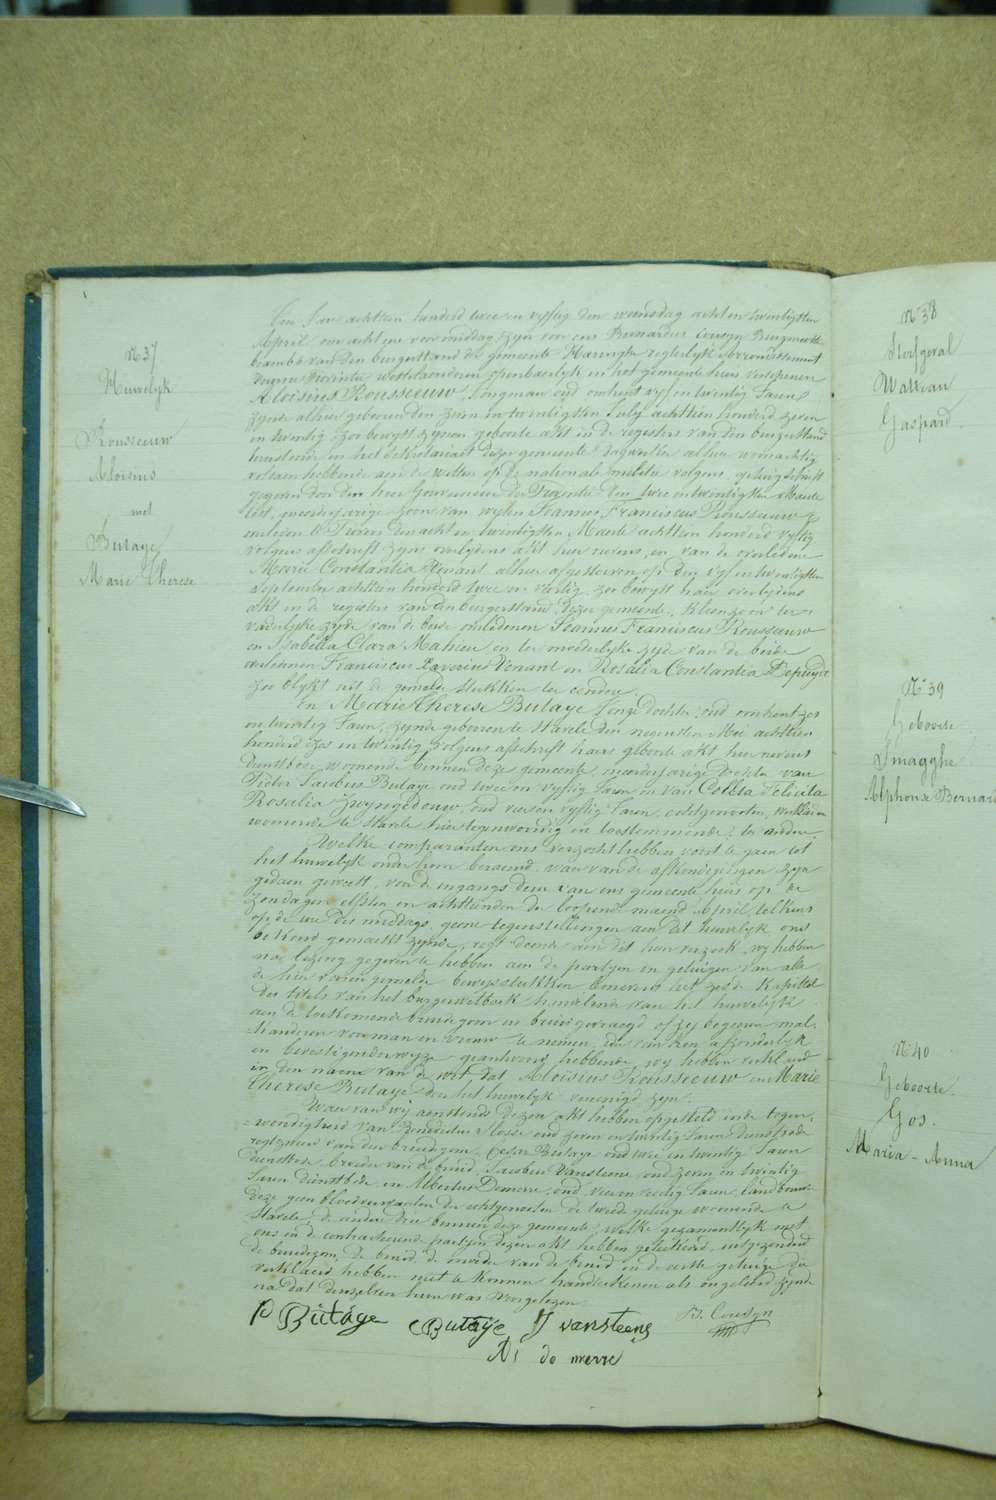 N.37
Huwelyk
Rousseeuw
Aloisius
met
Butaye
Marie Therese
Ten Jare achttien honderd twee en vyftig den woensdag acht en twintigsten
April om acht ure voormiddag, zyn voor ons Bernardus Cousyn Burgemeester
van den burgerstand der gemeente Haringhe regterlyk Arrondissement
Provintie Westvlaenderen openbaerlyk in het gemeente huis verschenen
Aloisius Rousseeuw, Jongman oud omtrent vyf en twintig Jaren
zynde alhier geboren den zeven en twintigsten July achttien honderd zeven
en twintig, zoo bewyst zynen geboorte akt in de registers van den burgerstand
berustende in het Sekretariaet dezer gemeente alhier woonachtig
voldaen hebbende aen de wetten op de nationale militie volgens getuigschrift
gegeven door den heer Gouverneur der Provintie den twee en twintigsten Maerte
lest, meerderjarige zoon van wylen Joannes Franciscus Rousseeuw
overleden te den acht en twintigsten Maerte achttien honderd vyftig
volgens afschrift zyns overlydens akt hier nevens, en van de overledene
Marie Constantia Venant alhier afgestorven op den vyf en twintigsten
September achttien honderd twee en veertig, zoo bewyst haer overlydens
akt in de registers van den burgerstand dezer gemeente, kleinzoon ter
vaderlyke zyde van de beide overledenen Joannes Franciscus Rousseeuw
en Isabella Clara Mahieu en ter moederlyke zyde van de beide
overledenen Franciscus Xaverius Venant en Rosalia Constantia Depuydt
zoo blykt uit de gemelde stukken ter eendre.
En Marie Therese Butaye Jonge dochter oud omtrent zes
en twintig Jaren, zynde geboren te Stavele den negensten Mei achttien
honderd zes en twintig, volgens afschrift haers geboorte akt hier nevens
dienstbode, woonende binnen deze gemeente, meerderjarige dochter van
Pieter Jacobus Butaye oud twee en vyftig Jaren en van Coleta Felicita
Rosalia Zwyngedouw, oud vier en vyftig Jaren, echtgenooten, landslieden
woonende te Stavele hier tegenwoordig en toestemmende, ter andere.
Welke comparanten ons verzocht hebben voort te gaen tot
het huwelyk onder hun beraemd waer van de afkondigingen zyn
gedaen geweest, voor de ingangs deur van ons gemeente huis op de
zondagen elfsten en achttienden der loopende maend April, telkens
op de ure des middags, geene tegenstellingen aen dit huwelyk ons
bekend gemaekt zynde, regt doende aen dit hun verzoek, wy hebben
na lezing gegeven te hebben aen de partyen en getuigen van alle
de hier voren gemelde bewysstukken benevens het zesde kapittel
des titels van het burgerwetboek handelende van het huwelyk
aen de toekomende bruidegom en bruid gevraegd of zy begeeren mal-
kanderen voor man en vrouw te nemen, elk van hen afzonderlyk
en bevestigenderwyze geantwoord hebbende, wy hebben verklaerd
in den naem van de wet dat Aloisius Rousseeuw en Marie
Therese Butaye door het huwelyk vereenigd zyn.
Waer van wy aenstonds dezen akt hebben opgesteld in de tegen-
woordigheid van Benedictus oud zeven en twintig Jaren dienstbode
van den bruidegom, Cesar Butaye oud twee en twintig Jaren
dienstbode broeder van de bruid, Jacobus Vansteene oud zeven en twintig
Jaren dienstbode en Albertus Demerre, oud vier en veertig Jaren, landbouwer
deze geen bloedverwanten der echtgenooten de tweede getuige woonende te
Stavele, de andere drie binnen deze gemeente, welke gezamentlyk met
ons en de contracterende partyen dezen akt hebben geteekend, uitgezonderd
de bruidegom, de bruid, de moeder van de bruid en de eerste getuige die
verklaerd hebben niet te konnen handteekenen als ongeleerd zynde
na dat dezelven hun was voorgelezen.
P Butaye C Butaye J vansteene B. Cousyn
Al de merre
N.38
Sterfgeval
Wattrau
Gaspard.
N.39
Geboorte
Smagghe
Alphonse Bernard
N.40
Geboorte.
Gos.
Maria-Anna